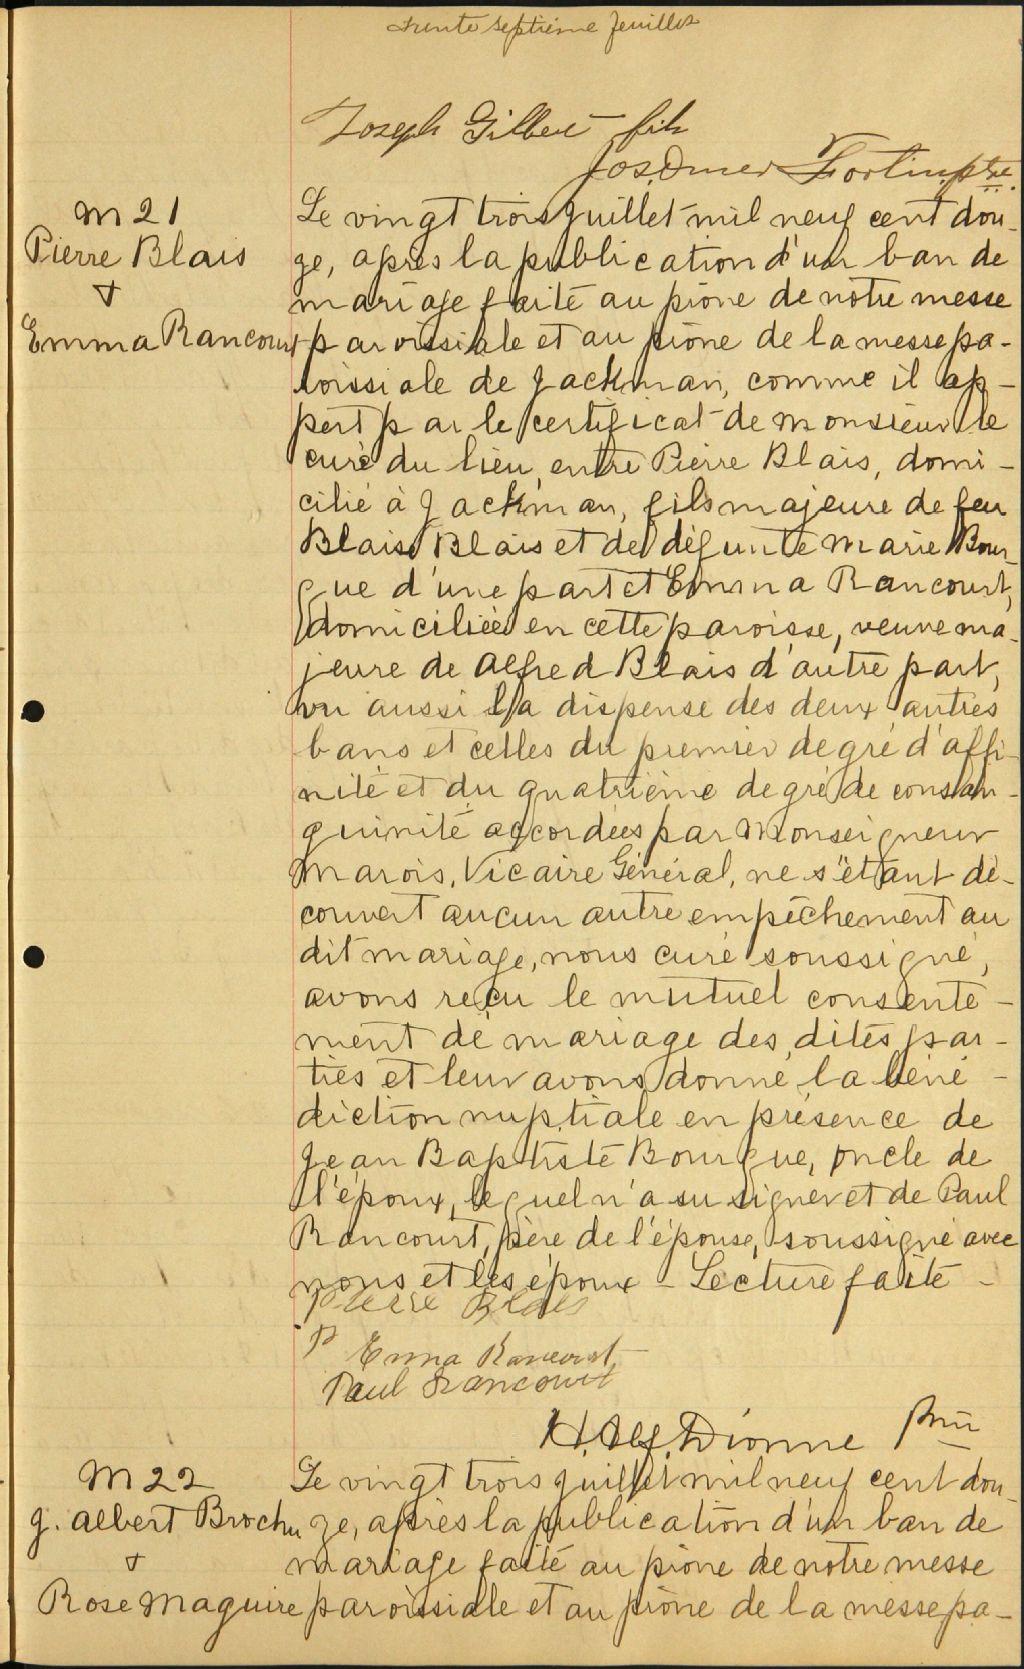 trente septième feuillet
Joseph Gilbert fils
Jos. Omer Fortin, ptre.
M 21
Pierre Blais
+
Emma Rancourt
Le vingt trois Juillet mil neuf cent dou-
ze, après la publication d'un ban de
mariage faite au prône de notre messe
paroissiale et au prône de la messe pa-
roissiale de Jackman, comme il ap-
pert par le certificat de Monsieur le
curé du lieu, entre Pierre Blais, domi-
cilié à Jackman, fils majeure de feu
Blaise Blais et de défunte Marie Bour-
que d'une part et Emma Rancourt,
domiciliée en cette paroisse, veuve ma-
jeure de Alfred Blais d'autre part,
vu aussi la dispense des deux autres
bans et celles du premier degré d'affi-
nité et du quatrième degré de consan-
guinité accordées par Monseigneur
Marois, Vicaire Général, ne s'étant dé-
couvert aucun autre empêchement au
dit mariage, nous curé soussigné,
avons reçu le mutuel consente-
ment de mariage des dites par-
ties et leur avons donné la béné-
diction nuptiale en présence de
Jean Baptiste Bourque, oncle de
l'époux, lequel n'a su signer et de Paul
Rancourt, père de l'épouse, soussigné avec
nous et les époux - Lecture faite -
Pierre Blais
Emma Rancourt
Paul Rancourt
H. Alf. Dionne Ptre
M 22
J. Albert Brochu
+
Rose Maguire
Le vingt trois Juillet mil neuf cent dou-
ze, après la publication d'un ban de
mariage faite au prône de notre messe
paroissiale et au prône de la messe pa-